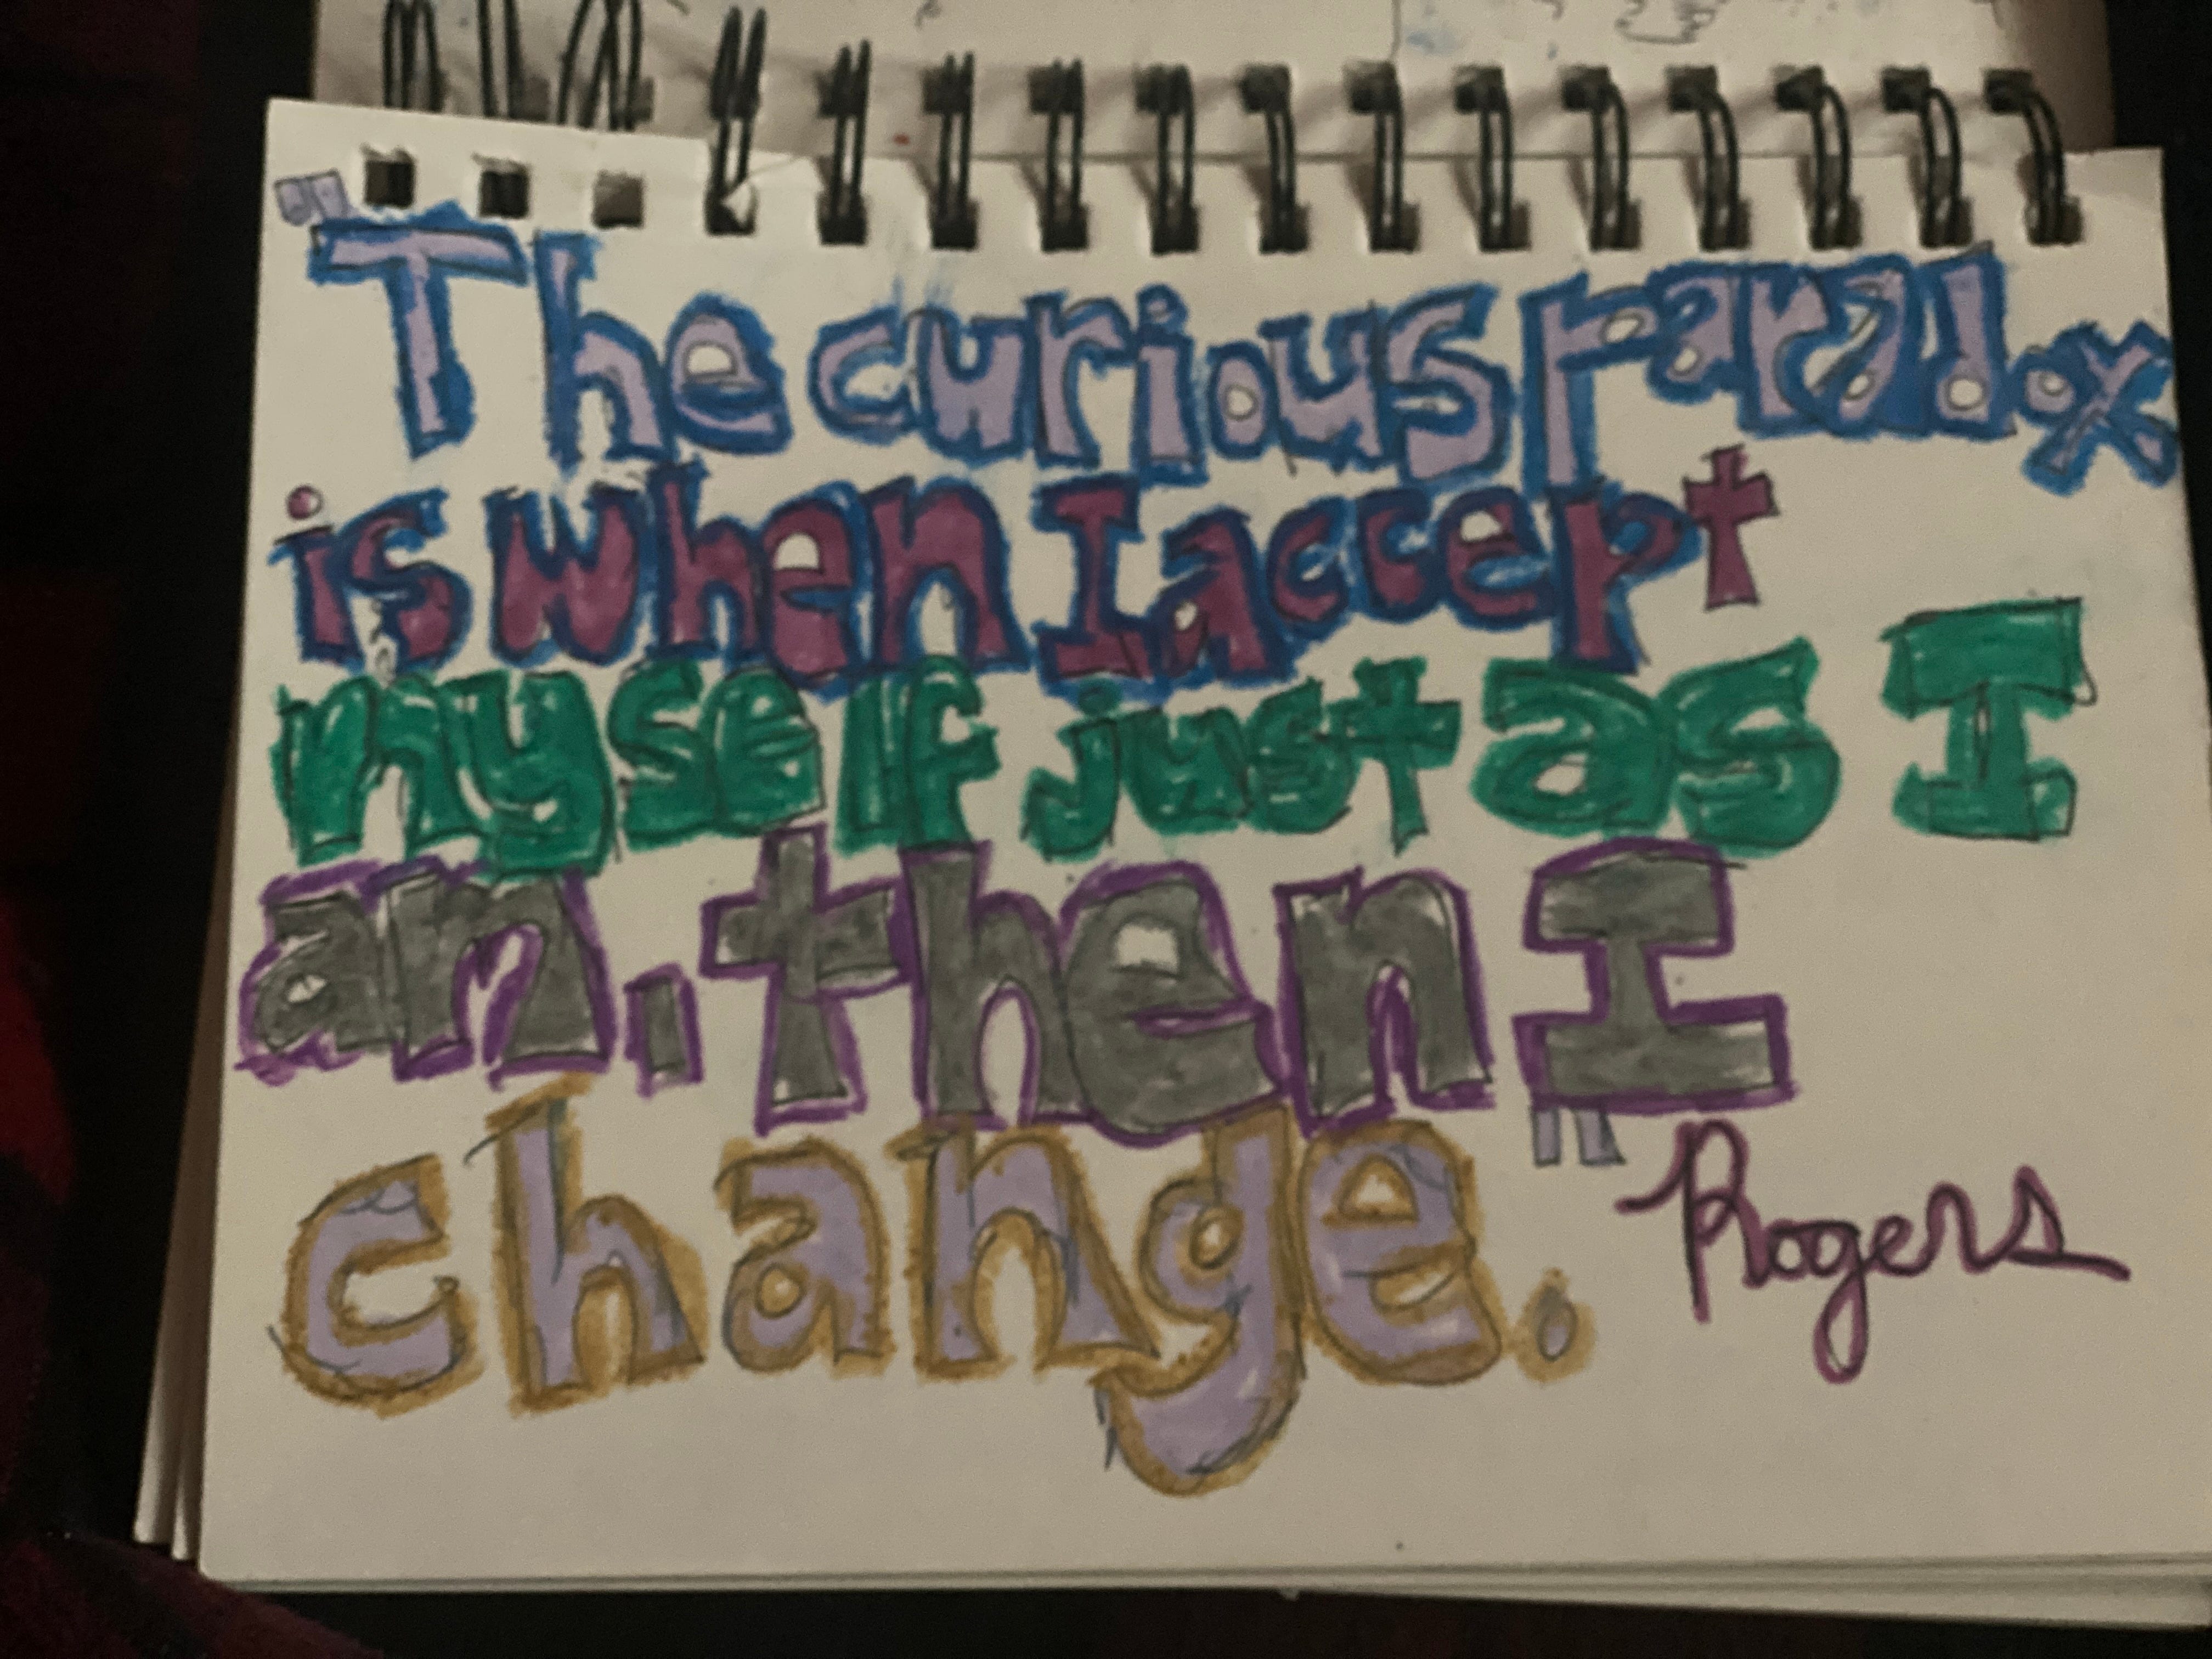 "The curious paradox
is when I accept
myself just as I
am, then I
change."
Rogers